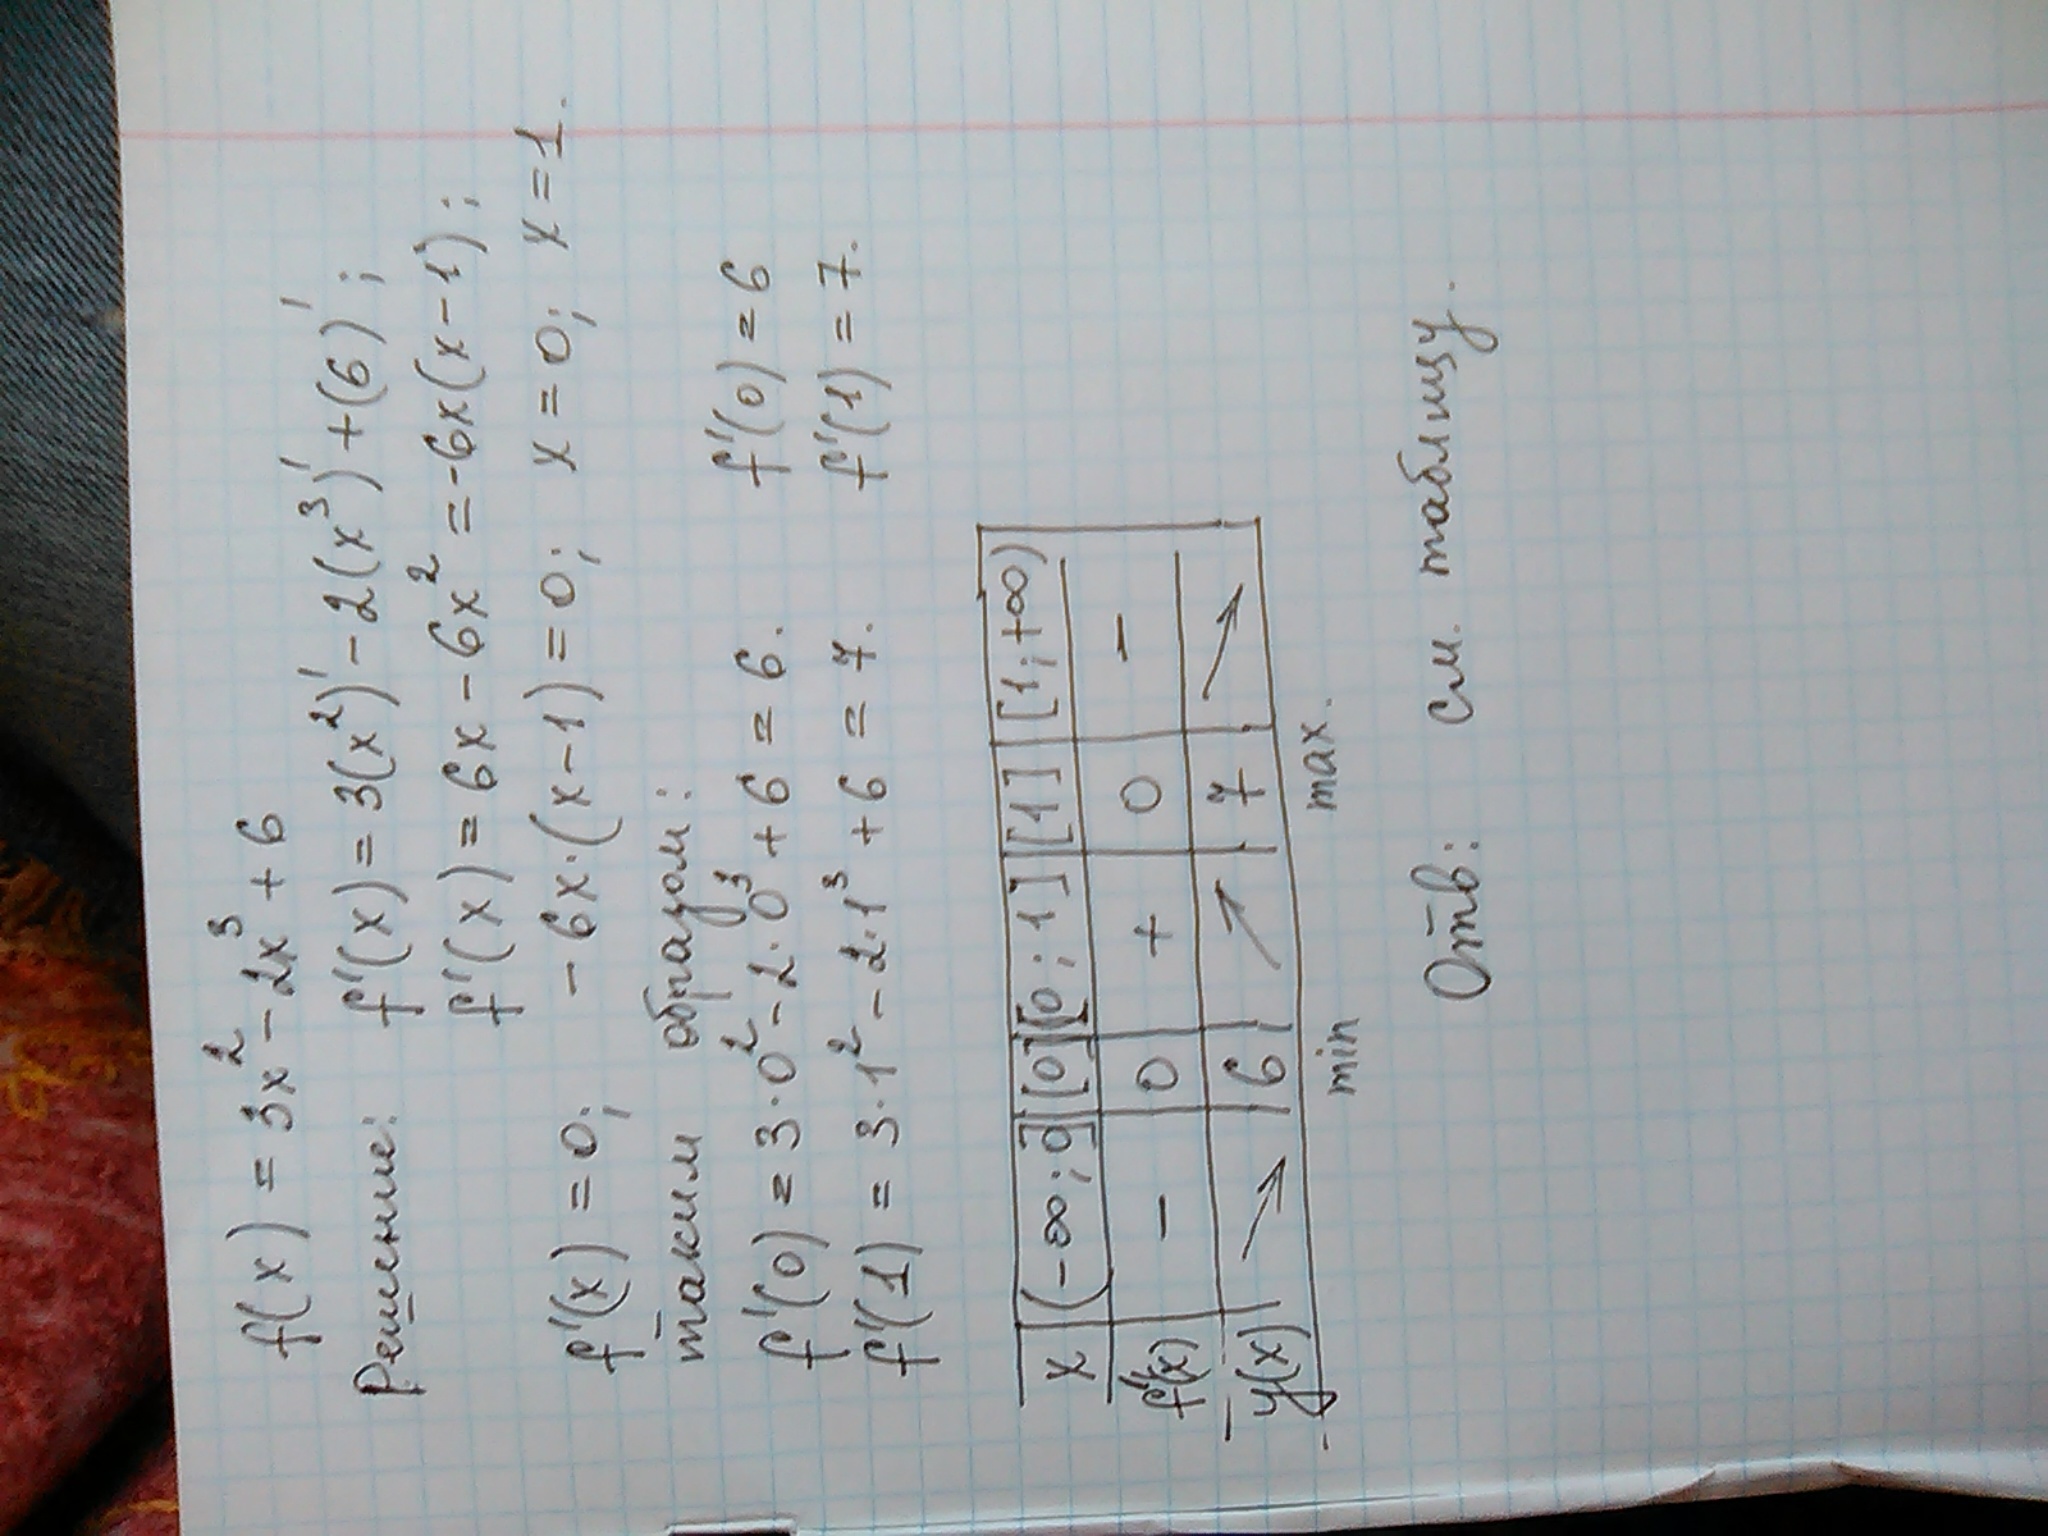 f(x) = 3x² - 2x³ + 6
Решение: f'(x) = 3(x²)' - 2(x³)' + (6)';
f'(x) = 6x - 6x² = -6x(x-1);
f'(x) = 0; -6x·(x-1) = 0; x = 0; x = 1.
таким образом:
f'(0) = 3·0² - 2·0³ + 6 = 6. f'(0) = 6
f'(1) = 3·1² - 2·1³ + 6 = 7. f'(1) = 7.
x (-∞; 0] [0] [0; 1] [1] [1; +∞)
f'(x) - 0 + 0 -
y(x) ↘ 6 ↗ 7 ↘
min max.
Отв: см. таблицу.